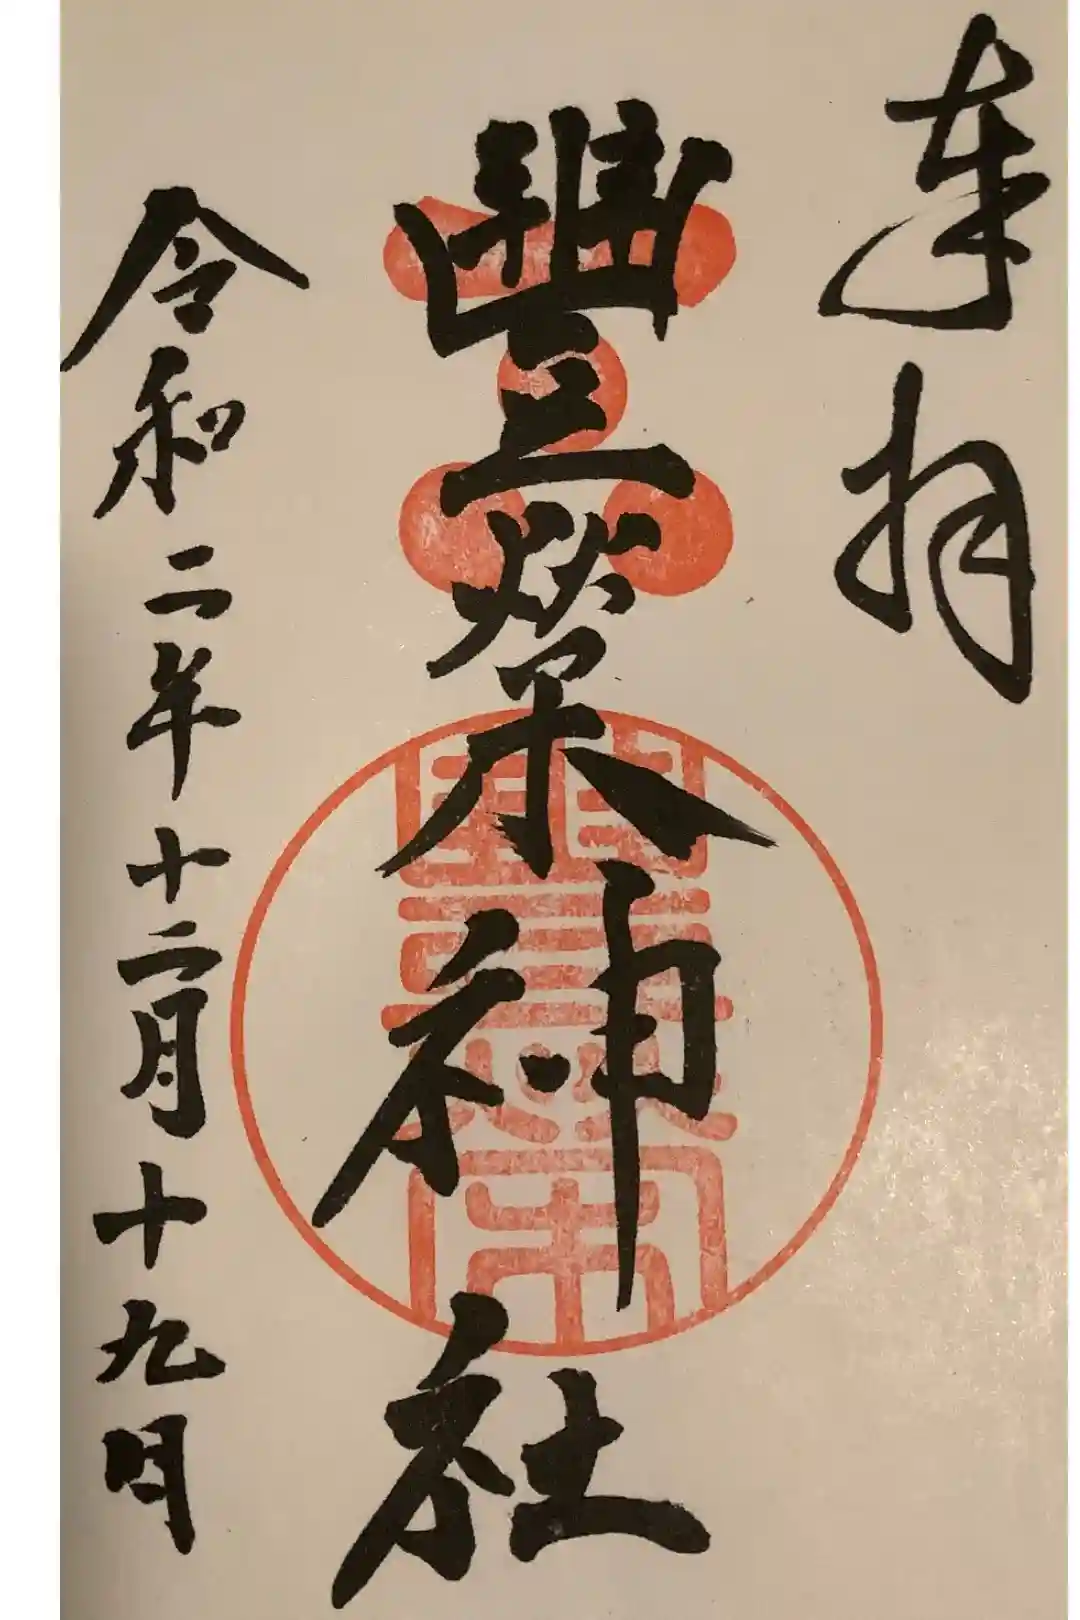 奉拝
豊栄神社
令和二年十二月十九日
豊栄